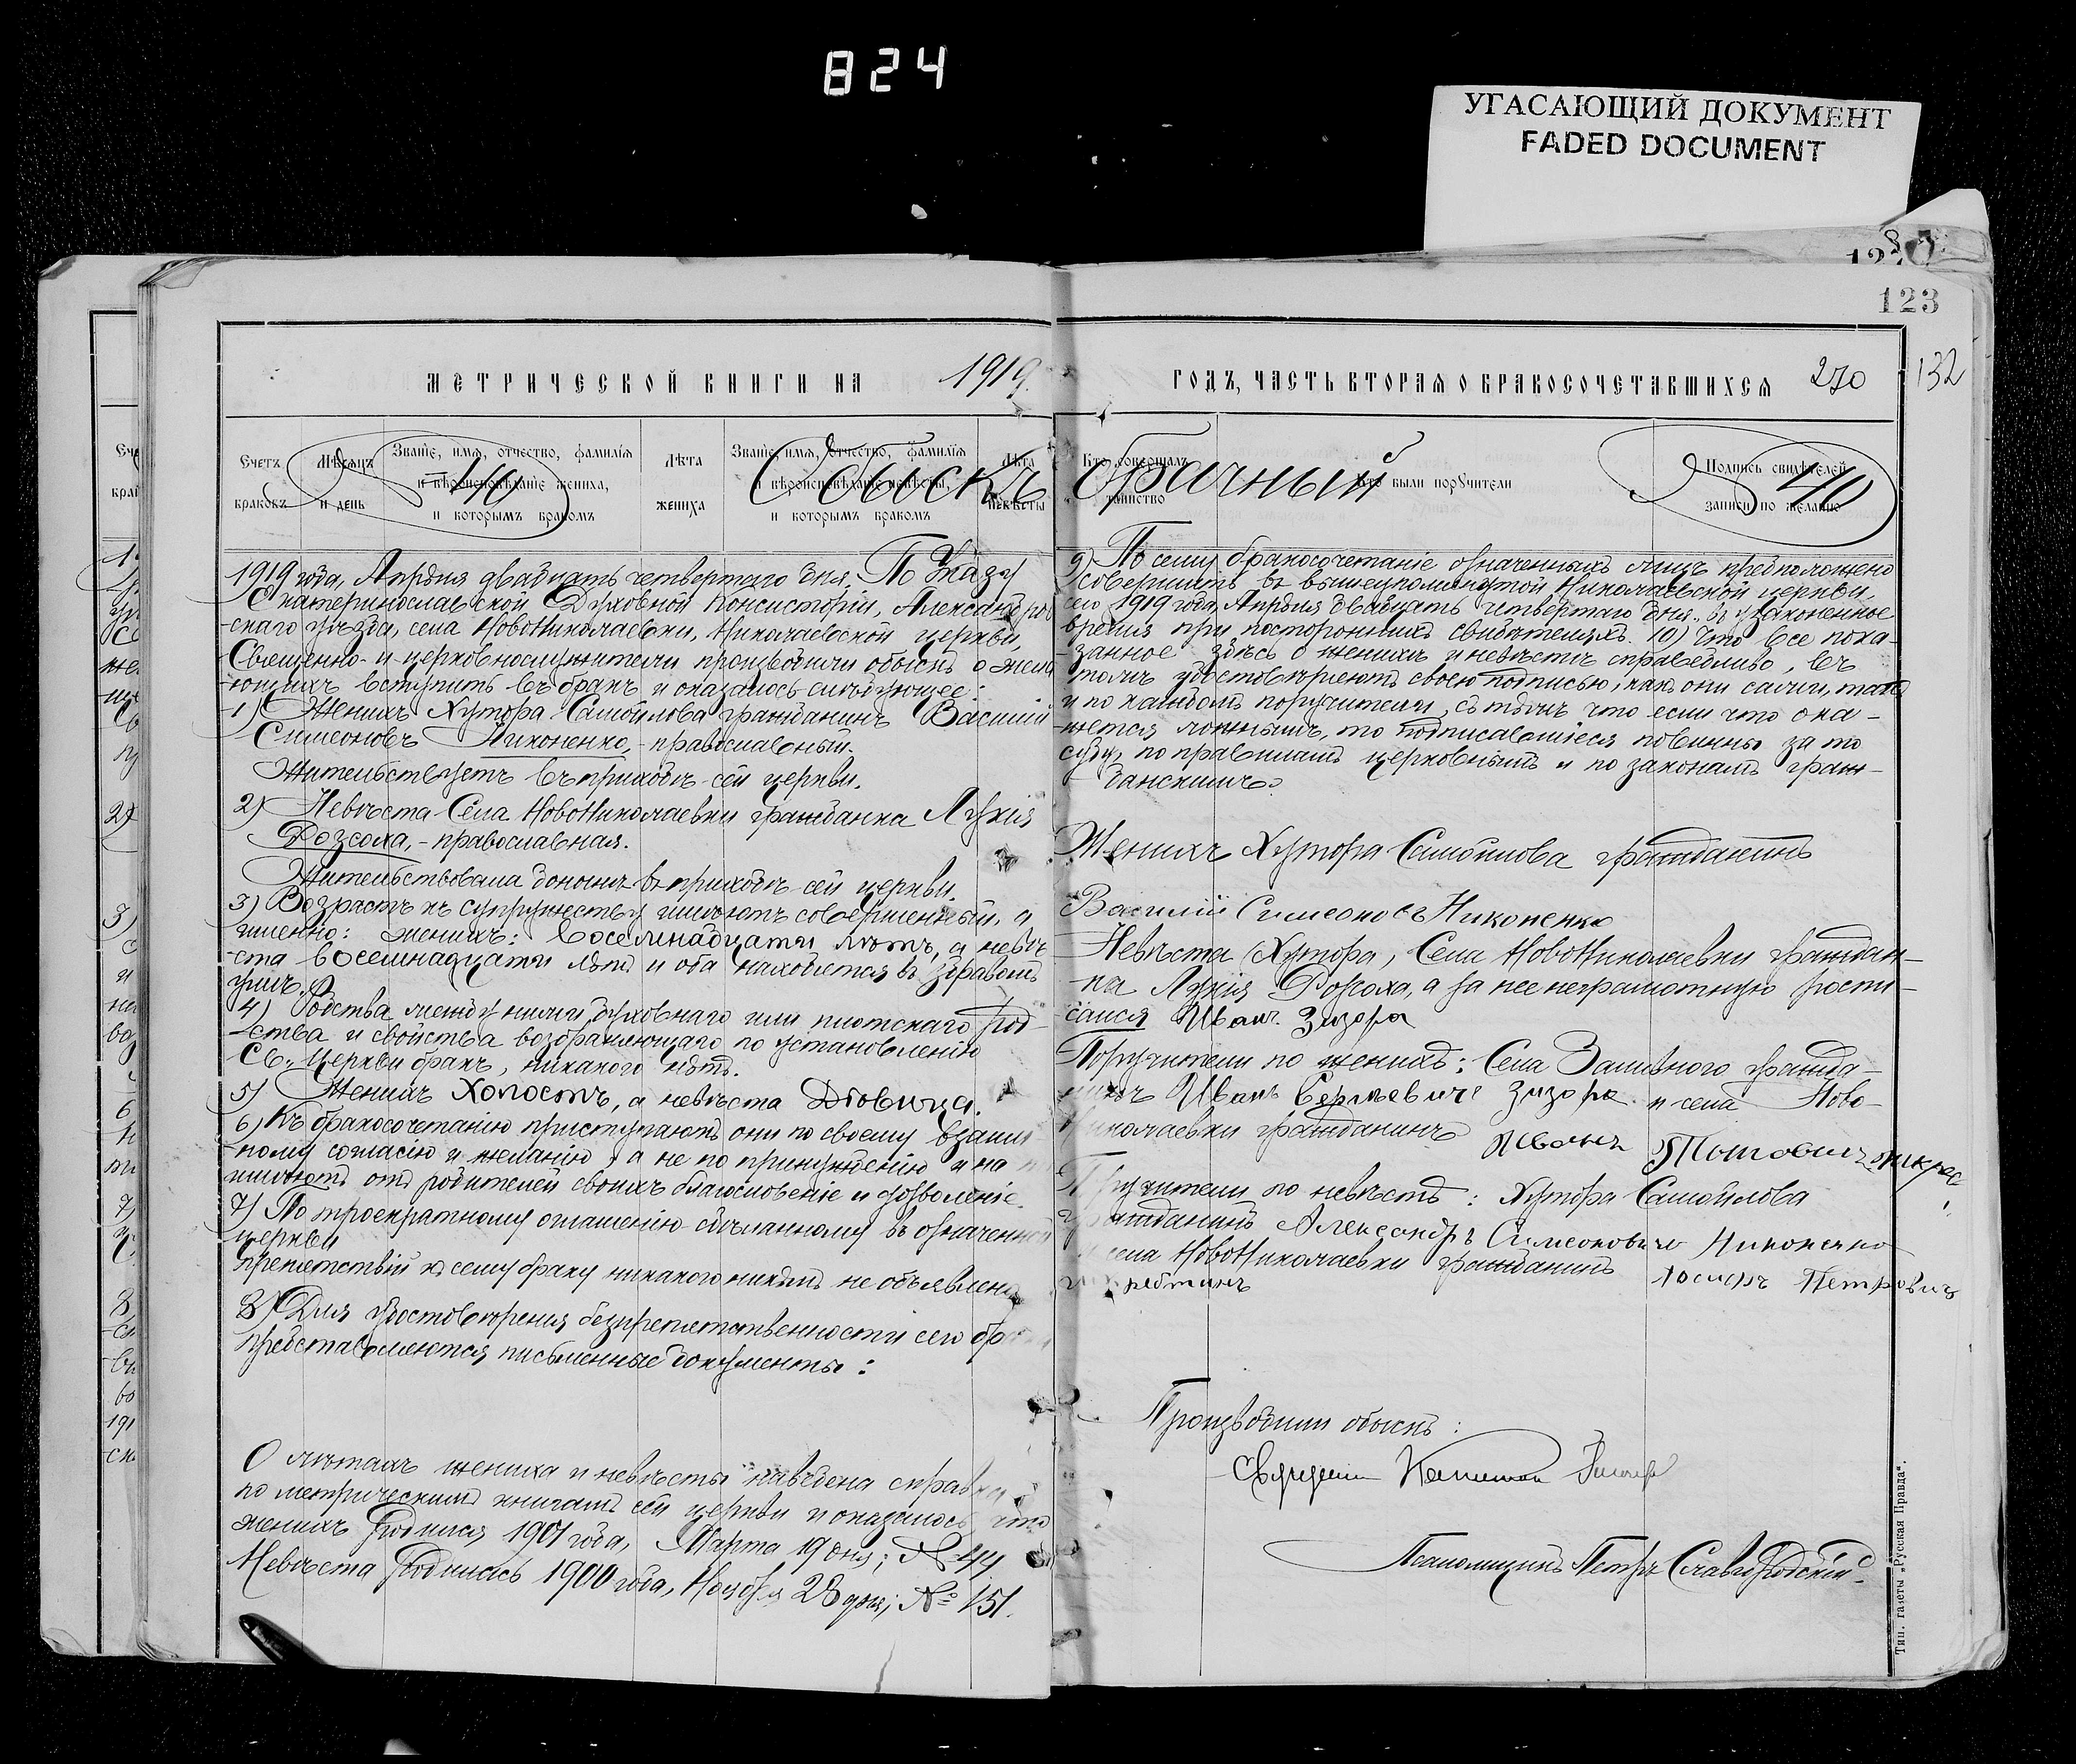 824
УГАСАЮЩИЙ ДОКУМЕНТ
FADED DOCUMENT
123
МЕТРИЧЕСКОЙ КНИГИ НА 1919
Счетъ браковъ
Мѣсяцъ и день
Званіе, имя, отчество, фамилія и вѣроисповѣданіе жениха, и которымъ бракомъ
Лѣта жениха
Званіе, имя, отчество, фамилія и вѣроисповѣданіе невѣсты, и которымъ бракомъ
Лѣта невѣсты
40 Обыскъ
1919 года, Апрѣля двадцать четвертаго дня. По Указу
Екатеринославской Духовной Консисторіи, Александров
скаго уѣзда, села НовоНиколаевки, Николаевской церкви,
Священно- и церковнослужители произвѣдили обыскъ о жела
ющихъ вступить въ бракъ и оказалось слѣдующее:
1) Женихъ Хутора Самойлова гражданинъ Василій
Симеоновъ Никоненко, - православный.
Жительствуетъ въ приходѣ сей церкви.
2) Невѣста Села НовоНиколаевки гражданка Лукія
православная.
Жительствовала донынѣ въ приходѣ сей церкви.
3) Возрастъ къ супружеству имѣютъ совершенный, а
именно: женихъ: восемнадцати лѣтъ, а невѣ
ста восемнадцати лѣтъ и оба находятся въ здравомъ
умѣ.
4) Родства между ними, духовнаго или плотскаго род-
ства и свойства возбраняющаго по установленію
Св. Церкви бракъ, никакого нѣтъ.
5) Женихъ Холостъ, а невѣста Дѣвица.
6) Къ бракосочетанію приступаютъ они по своему взаим
ному согласію и желанію, а не по принужденію и на
имѣютъ отъ родителей своихъ благословеніе и дозволеніе
7) По троекратному оглашенію сдѣланному въ означенной
церкви
препятствій къ сему браку никакого никѣмъ не объявлено
8) Для удостовѣренія безпрепятственности сего бра
представляются письменные документы:
О лѣтахъ жениха и невѣсты наведена справка
по метрическимъ книгамъ сей церкви и оказалось что
женихъ Родился 1901 года, Марта 19 дня; № 44
Невѣста Родилась 1900 года, Ноября 28 дня; № 151.
ГОДЪ, ЧАСТЬ ВТОРАЯ О БРАКОСОЧЕТАВШИХСЯ 270 132
Кто совершалъ таинство
Кто были поручители
Подпись свидѣтелей записи по желанію
брачный 40
9) По сему бракосочетаніе означенныхъ лицъ предположено
совершить въ вышеупомянутой Николаевской церкви,
сего 1919 года, Апрѣля двадцать четвертаго дня, въ узаконенное
время при постороннихъ свидѣтеляхъ. 10) Что все пока-
занное здѣсь о женихѣ и невѣстѣ справедливо, въ
томъ удостовѣряютъ своею подписью, какъ они сами, такъ
и по каждомъ поручители, съ тѣмъ что если что ока-
жется ложнымъ, то подписавшіеся повинны за то
суду, по правиламъ церковнымъ и по законамъ граж-
данскимъ.
Женихъ Хутора Самойлова гражданинъ
Василій Симеоновъ Никоненко
Невѣста (Хутора, Села НовоНиколаевки граждан-
ка Лукія а за нее неграмотную роспи-
сался Иванъ Зизора
Поручители по женихѣ: Села Заливного гражда-
нинъ Иванъ Сергѣевичъ Зизора и села Ново-
Николаевки гражданинъ Иванъ
Поручители по невѣстѣ: Хутора Самойлова
гражданинъ Александръ Симеоновичъ Никоненко
и села НовоНиколаевки гражданинъ Іосифъ Петровичъ
Произвѣдили обыскъ:
Псаломщикъ Петръ Славгородскій
Тип. газеты „Русская Правда“.